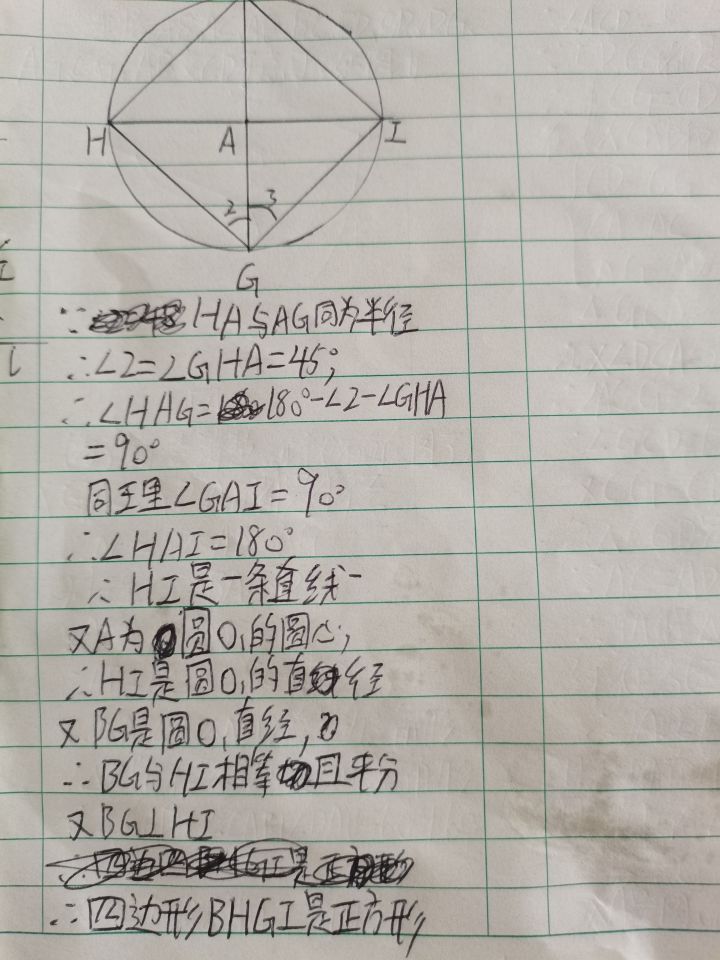 H
A
I
2
3
G
∵HA与AG同为半径
∴∠2=∠GHA=45°,
∴∠HAG=180°-∠2-∠GHA
=90°
同理∠GAI=90°
∴∠HAI=180°
∴HI是一条直线
又A为圆O₁的圆心,
∴HI是圆O₁的直径
又BG是圆O₁直径,
∴BG与HI相等且平分
又BG⊥HI
∴四边形BHGI是正方形